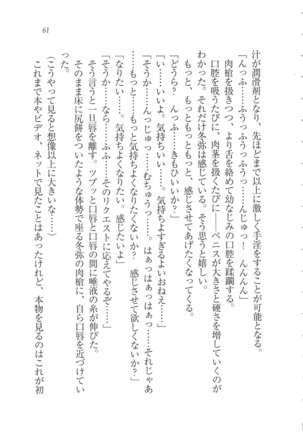 61
汁が潤滑剤となり、先ほどまで以上に激しく手淫をすることが可能となる。
「んっふ……ふうっふうっふうっ……んじゅっ……んんんん」
肉槍を扱きつつ、より舌を絡めて幼なじみの口腔を蹂躙する。
口腔を吸うたびに、肉茎を扱くたびに――ペニスが大きさと硬さを増していくのが
わかった。それだけ冬弥は感じている。そう思うと嬉しい。
もっと、もっともっともっと、感じさせてあげたくなってくる。
「どうら？　んっふ……きもひいいか？」
「い……いいよ。気持ちいい……。気持ちよすぎるよおねえ……」
「そうか……んっじゅっ……むちゅうっ……はぁっはぁっはぁっ……それじゃあ
……もっと……もっと気持ちよくなりたくないか？　感じさせて欲しくないか？」
「なりたい……。気持ちよくなりたい。感じたいよ」
「そうか……だったら……そのリクエストに応えてやるぞ……」
そう言うと一旦唇を離す。ツプッと口唇と口唇の間に唾液の糸が伸びた。
そのまま床に尻餅をついたような体勢で座る冬弥の肉槍に、自ら口唇を近づけてい
った。
（こうやって見ると想像以上に大きいな……）
これまで本やビデオ、ネットで見たことはあったけれど、本物を見るのはこれが初